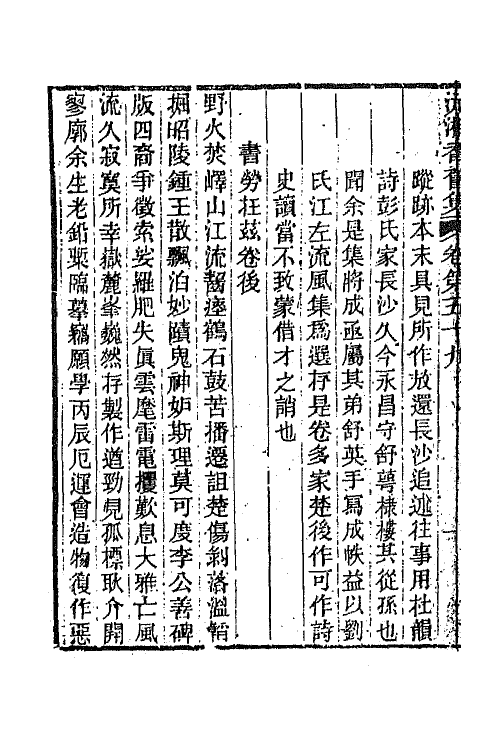 沅湘耆舊集 卷第五十九
蹤跡本末具見所作放還長沙追述往事用杜韻
詩彭氏家長沙久今永昌守舒萼棣樓其從孫也
聞余是集將成亟屬其弟舒英手寫成帙益以劉
氏江左流風集爲選存是卷多家楚後作可作詩
史讀當不致蒙借才之誚也
書勞在茲卷後
野火焚嶧山江流齧瘞鶴石鼓苦播遷詛楚傷剝落溫韜
掘昭陵鍾王散飄泊妙蹟鬼神妒斯理莫可度李公善碑
版四裔爭徵索娑羅肥失眞雲麾雷電攫歎息大雅亡風
流久寂寞所幸嶽麓峯巍然存製作遒勁見孤標耿介開
寥廓余生老鉛槧臨摹竊願學丙辰厄運會造物復作惡